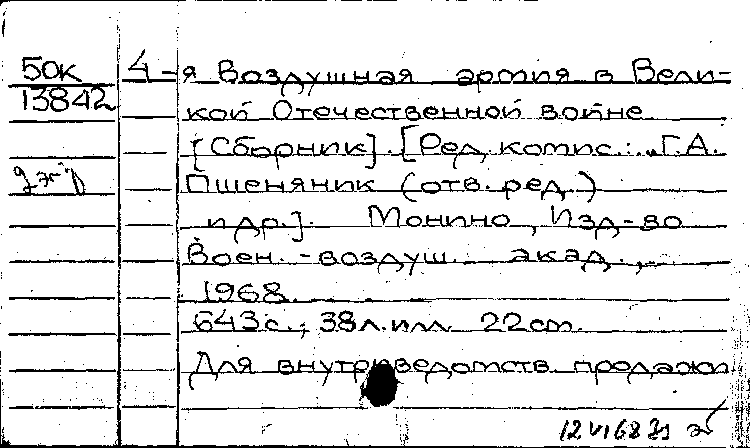 50к 4-я Воздушная армия в Вели-
13842 кой Отечественной войне
[Сборник]. [Ред. комис.: Г.А.
Пшеняник (отв. ред.)
и др.]. Монино, Изд-во
Воен.-воздуш. акад.,
1968.
643 с.; 38 л. илл. 22 cm.
Для внутриведомств. продажи
12 VI 68